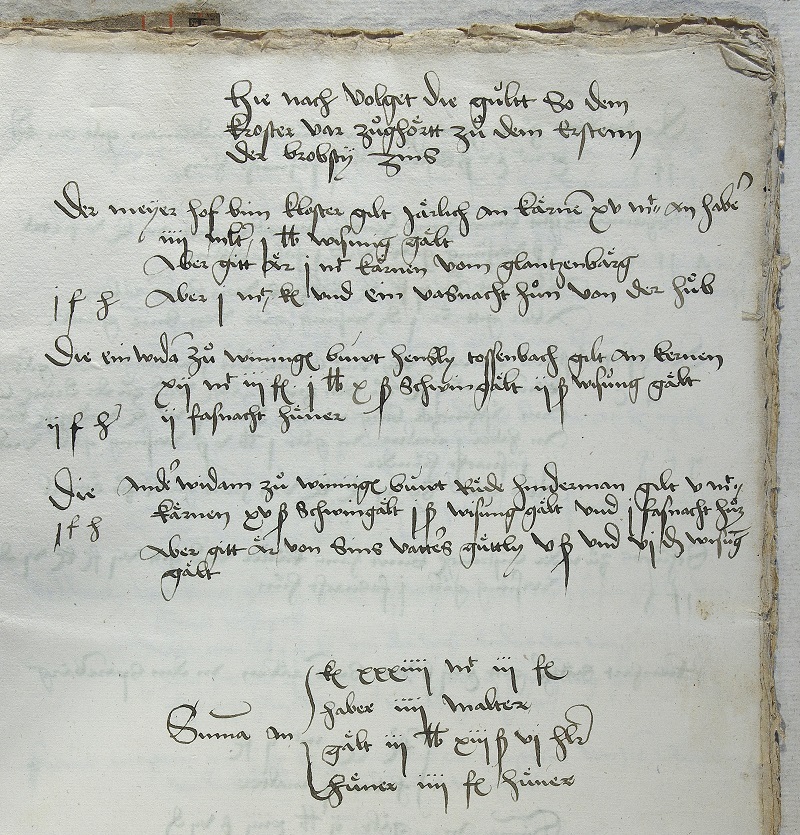 Hie nach volget die gůltt So dem
kloster var zůghörtt zů dem Ersten
der brobsty zins
Der meyer hof bim kloster gilt järlich an kärnē xv mt an habe
iiij mlt j lb wisung gält
Aber gitt är j mt kärnen vom glantzenbärg
j f h Aber j mt k und ein vasnacht hůn von der hůb
Die ein widā zů winingē buwt hensly tossenbach gilt an kernen
xij mt iij f j lb x ß Schwingält ij ß wisung gält
ij f h ij fasnacht hůner
Die Ander widam zů winingē buwt Růde hinderman gilt v mt
kärnen xv ß Schwingält j ß wisung gält und j fasnacht hůn
j f h
Aber gitt är von Sins vatters güttly v ß und vj d wisung
gält
Suma an
k xxxiiij mt iij f
haber iiij malter
gält iij lb xiij ß vj hlr
hůner iiij f hůner